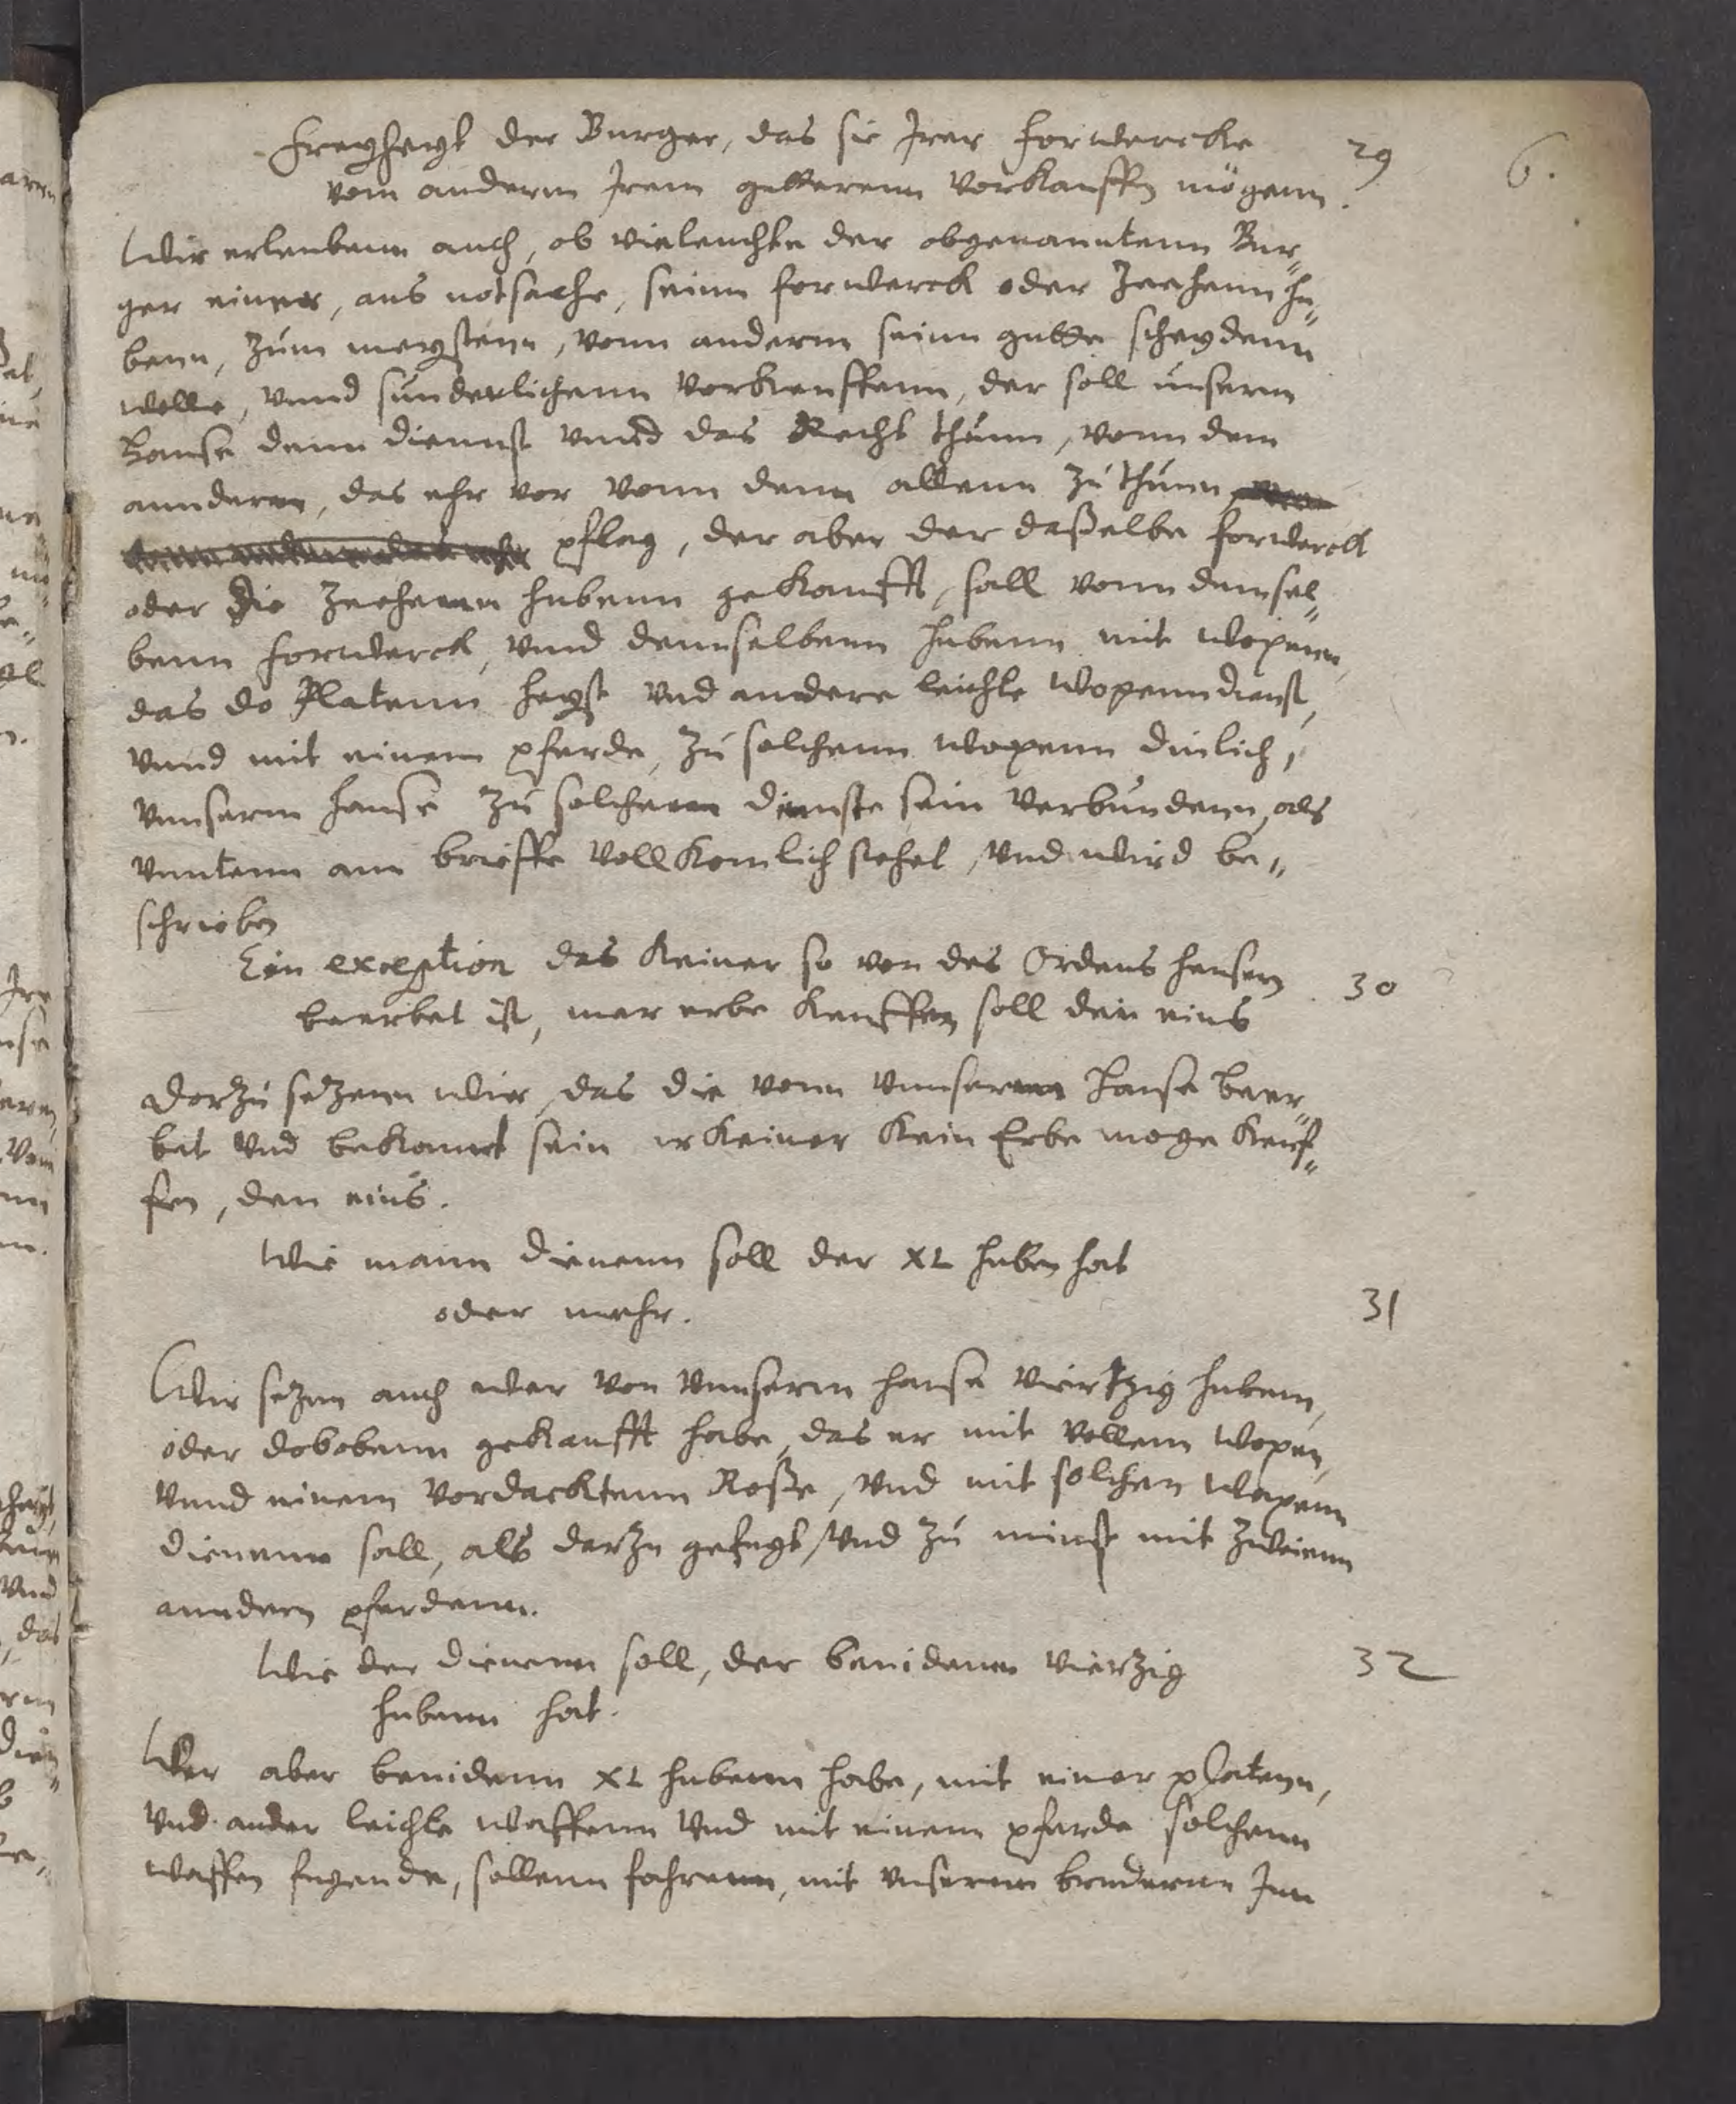 Freyheyt der Burger, das sie Irer forwercke 29 6.
vom anderm Irem gutterenn vorkauffen mögenn.
Wir erlaubenn auch, ob vieleuchte der obgenanntenn Bur„
ger einer, aus notsache, seinn forwerck oder Zeehenn hu„
benn, zum meystenn, vonn anderm seinn gutte scheydenn
wolle, vnnd sunderlichenn vorkauffenn, der soll unserm
Hause denn diennst vnnd das Recht thunn, vonn dem
annderen, das ehr vor vonn denn allenn zu thunn
pflag, der aber der daßelbe forwerck
oder die Zeehenn hubenn gekaufft, sall vonn demsel„
benn forwerck, vnnd dennselbenn hubenn mit wopenn,
das do Platenn heyst vnd andere leichte wopenn dienst,
vnnd mit einem pferde, zu solchenn wopenn dinlich,
vnnserm hause zu solchenn dienste sein verbundenn, als
vnntenn am brieffe vollkomlich stehet, vnd wird be„
schrieben
Ein exception das keiner so von des Ordens hausern 30
beerbet ist, mer erbe kauffen soll den eins
Dorzu setzenn wir, das die vonn vnnserenn Hause beer„
bet vnd bekannt sein keiner kein Erbe moge keuf„
fen, den eins.
Wie mann dienenn soll der XL huben hat
oder mehr. 31
Wir setzenn auch wer von vnnserm hause viertzig hubenn,
oder dobobenn gekaufft habe, das er mit vollem wopen,
vnnd einem vordacktenn Roße, vnd mit solchen wapenn
dienenn sall, als darzu gefugt, vnd zu minst mit zweienn
anndern pferdenn.
Wie der dienenn soll, der benidenn viertzig 32
hubenn hat.
Wer aber benidenn XL hubenn habe, mit einer platenn,
vnd ander leichte waffenn vnd mit einem pferde solchenn
waffen fugende, sollenn fahrenn, mit vnserenn brudernn Inn